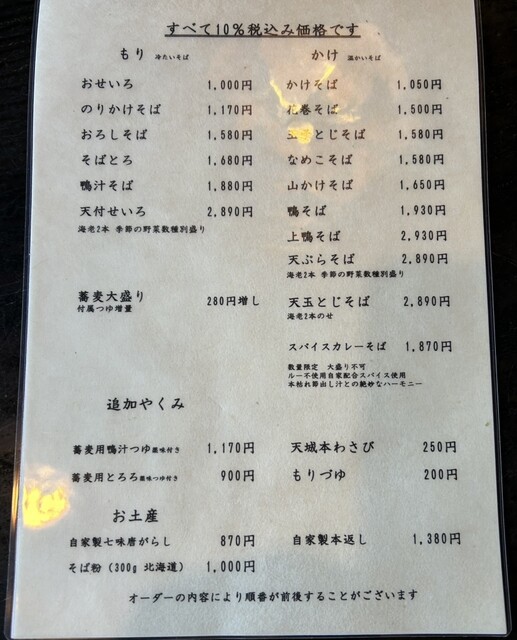 すべて10%税込み価格です
もり 冷たいそば
おせいろ 1,000円
のりかけそば 1,170円
おろしそば 1,580円
そばとろ 1,680円
鴨汁そば 1,880円
天付せいろ 2,890円
海老2本 季節の野菜数種別盛り
蕎麦大盛り 280円増し
付属つゆ増量
かけ 温かいそば
かけそば 1,050円
花巻そば 1,500円
玉子とじそば 1,580円
なめこそば 1,580円
山かけそば 1,650円
鴨そば 1,930円
上鴨そば 2,930円
天ぷらそば 2,890円
海老2本 季節の野菜数種別盛り
天玉とじそば 2,890円
海老2本のせ
スパイスカレーそば 1,870円
数量限定 大盛り不可
ルー不使用自家配合スパイス使用
本枯れ節出し汁との絶妙なハーモニー
追加やくみ
蕎麦用鴨汁つゆ薬味付き 1,170円
蕎麦用とろろ薬味つゆ付き 900円
天城本わさび 250円
もりづゆ 200円
お土産
自家製七味唐がらし 870円
そば粉(300g 北海道) 1,000円
自家製本返し 1,380円
オーダーの内容により順番が前後することがございます